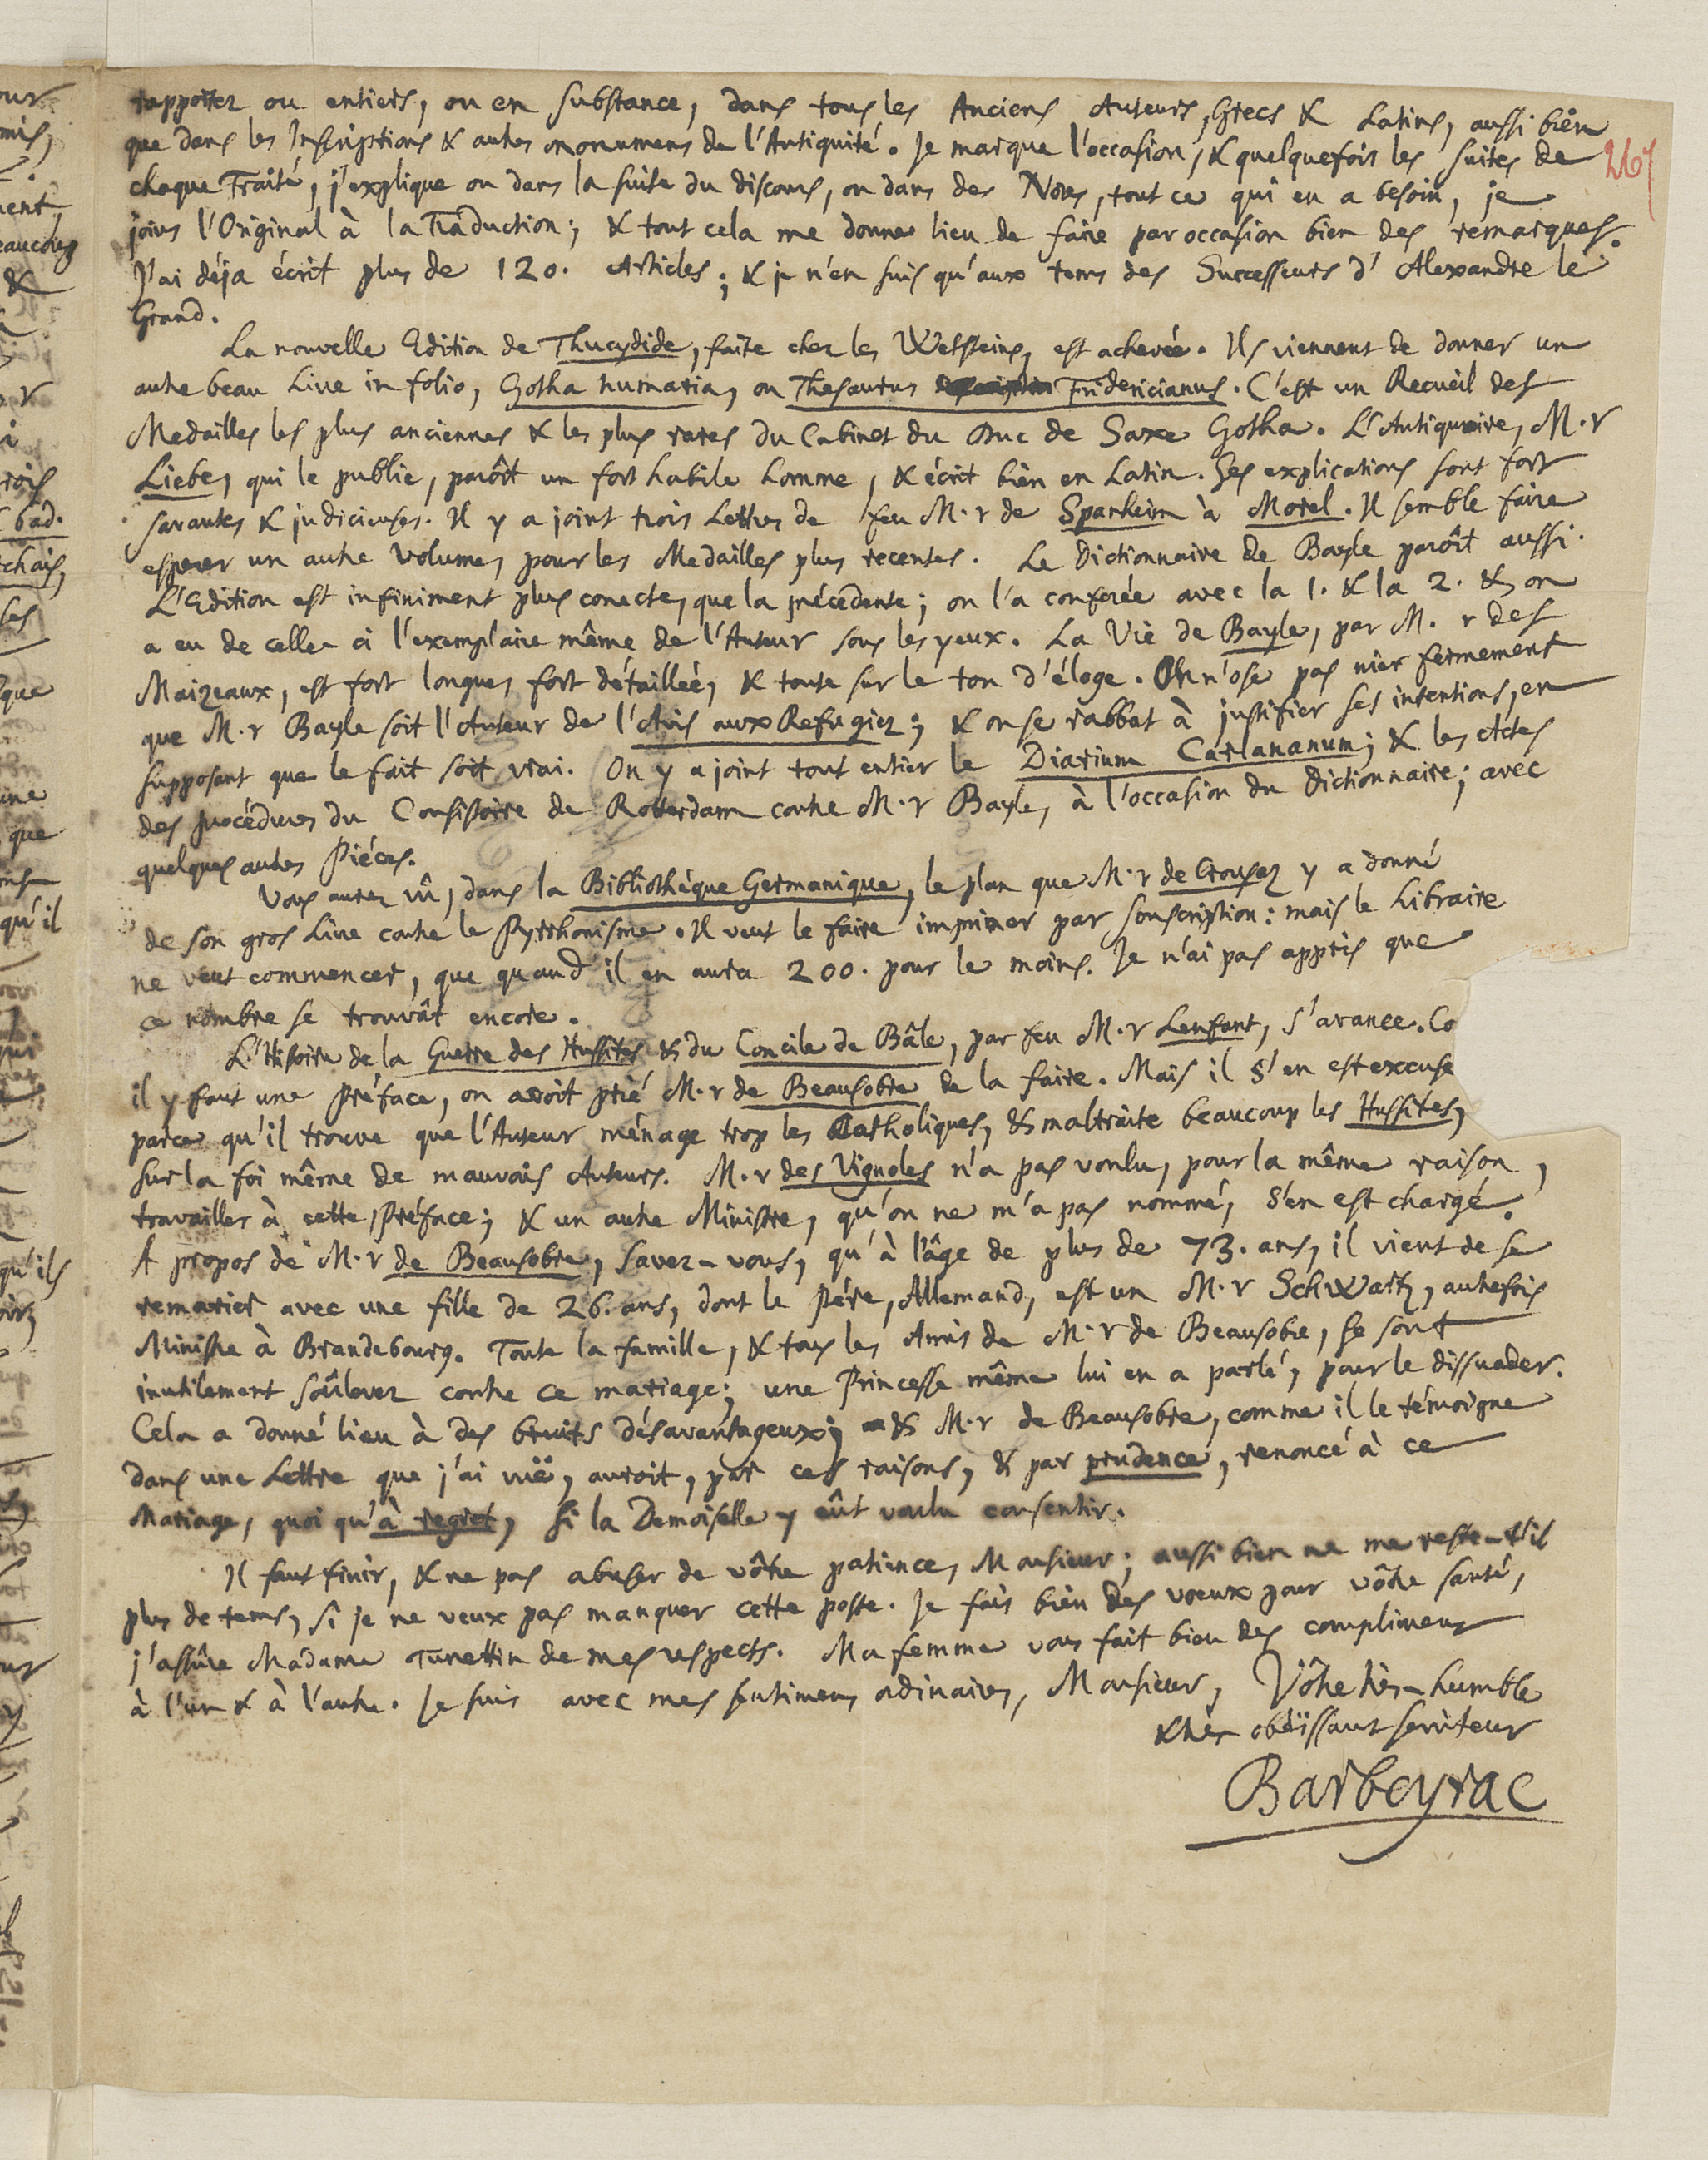 rapportez ou entiers, ou en substance, dans tous les Anciens Auteurs, Grecs & Latins, aussi bien
que dans les Inscriptions & autres monumens de l'Antiquité. Je marque l'occasion, & quelquefois les suites de
chaque Traité, j'explique ou dans la suite du discours, ou dans des Notes, tout ce qui en a besoin, je
joins l'Original à la Traduction; & tout cela me donne lieu de faire par occasion bien des remarques.
J'ai déja écrit plus de 120. Articles; & je n'en suis qu'aux tems des Successeurs d'Alexandre le
Grand.
La nouvelle Edition de Thucydide, faite chez les Wetsteins, est achevée. Ils viennent de donner un
autre beau Livre in folio, Gotha numaria, ou Thesaurus Fridericianus. C'est un Recueil des
Medailles les plus anciennes & les plus rares du Cabinet du Duc de Saxe Gotha. L'Antiquaire, M.r
Liebe, qui le publie, paroît un fort habile homme, & écrit bien en Latin. Ses explications sont fort
savantes & judicieuses. Il y a joint trois Lettres de feu M.r de Spanheim à Morel. Il semble faire
esperer un autre Volume, pour les Medailles plus recentes. Le Dictionnaire de Bayle paroît aussi.
L'Edition est infiniment plus correcte, que la précedente; on l'a conferée avec la 1. & la 2. & on
a eu de celle-ci l'exemplaire même de l'Auteur sous les yeux. La Vie de Bayle, par M.r des
Maizeaux, est fort longue, fort détaillée, & toute sur le ton d'éloge. On n'ose pas nier fermement
que M.r Bayle soit l'Auteur de l'Avis aux Refugiez; & on se rabbat à justifier ses intentions, en
supposant que le fait soit vrai. On y a joint tout entier le Diarium Carlananum; & les Actes
des procédures du Consistoire de Rotterdam contre M.r Bayle, à l'occasion du Dictionnaire; avec
quelques autres Piéces.
Vous aurez vû, dans la Bibliothéque Germanique, le plan que M.r de Crousaz y a donné
de son gros Livre contre le Pyrrhonisme. Il veut le faire imprimer par souscription: mais le Libraire
ne veut commencer, que quand il en aura 200. pour le moins. Je n'ai pas appris que
ce nombre se trouvât encore.
L'Histoire de la Guerre des Hussites & du Concile de Bâle, par feu M.r Lenfant, s'avance. Co
il y faut une Préface, on avoit prié M.r de Beausobre de la faire. Mais il s'en est excuse
parce qu'il trouve que l'Auteur ménage trop les Catholiques, & maltraite beaucoup les Hussites,
sur la foi même de mauvais Auteurs. M.r des Vignoles n'a pas voulu, pour la même raison,
travailler à cette Préface; & un autre Ministre, qu'on ne m'a pas nommé, s'en est chargé.
A propos de M.r de Beausobre, savez-vous, qu'à l'âge de plus de 73. ans, il vient de se
remarier avec une fille de 26. ans, dont le Pére, Allemand, est un M.r Schwartz, autrefois
Ministre à Brandebourg. Toute la famille, & tous les Amis de M.r de Beausobre, se sont
inutilement soûlevez contre ce mariage; une Princesse même lui en a parlé, pour le dissuader.
Cela a donné lieu à des bruits désavantageux; & M.r de Beausobre, comme il le témoigne
dans une Lettre que j'ai vuë, auroit, par ces raisons, & par prudence, renoncé à ce
Mariage, quoi qu'à regret, si la Demoiselle y eût voulu consentir.
Il faut finir, & ne pas abuser de vôtre patience, Monsieur; aussi bien ne me reste-t'il
plus de tems, si je ne veux pas manquer cette poste. Je fais bien des voeux pour vôtre santé,
j'assûre Madame Turrettin de mes respects. Ma femme vous fait bien des complimens
à l'un & à l'autre. Je suis avec mes sentimens ordinaires, Monsieur, Vôtre très-humble
& très obéïssant serviteur
Barbeyrac
267